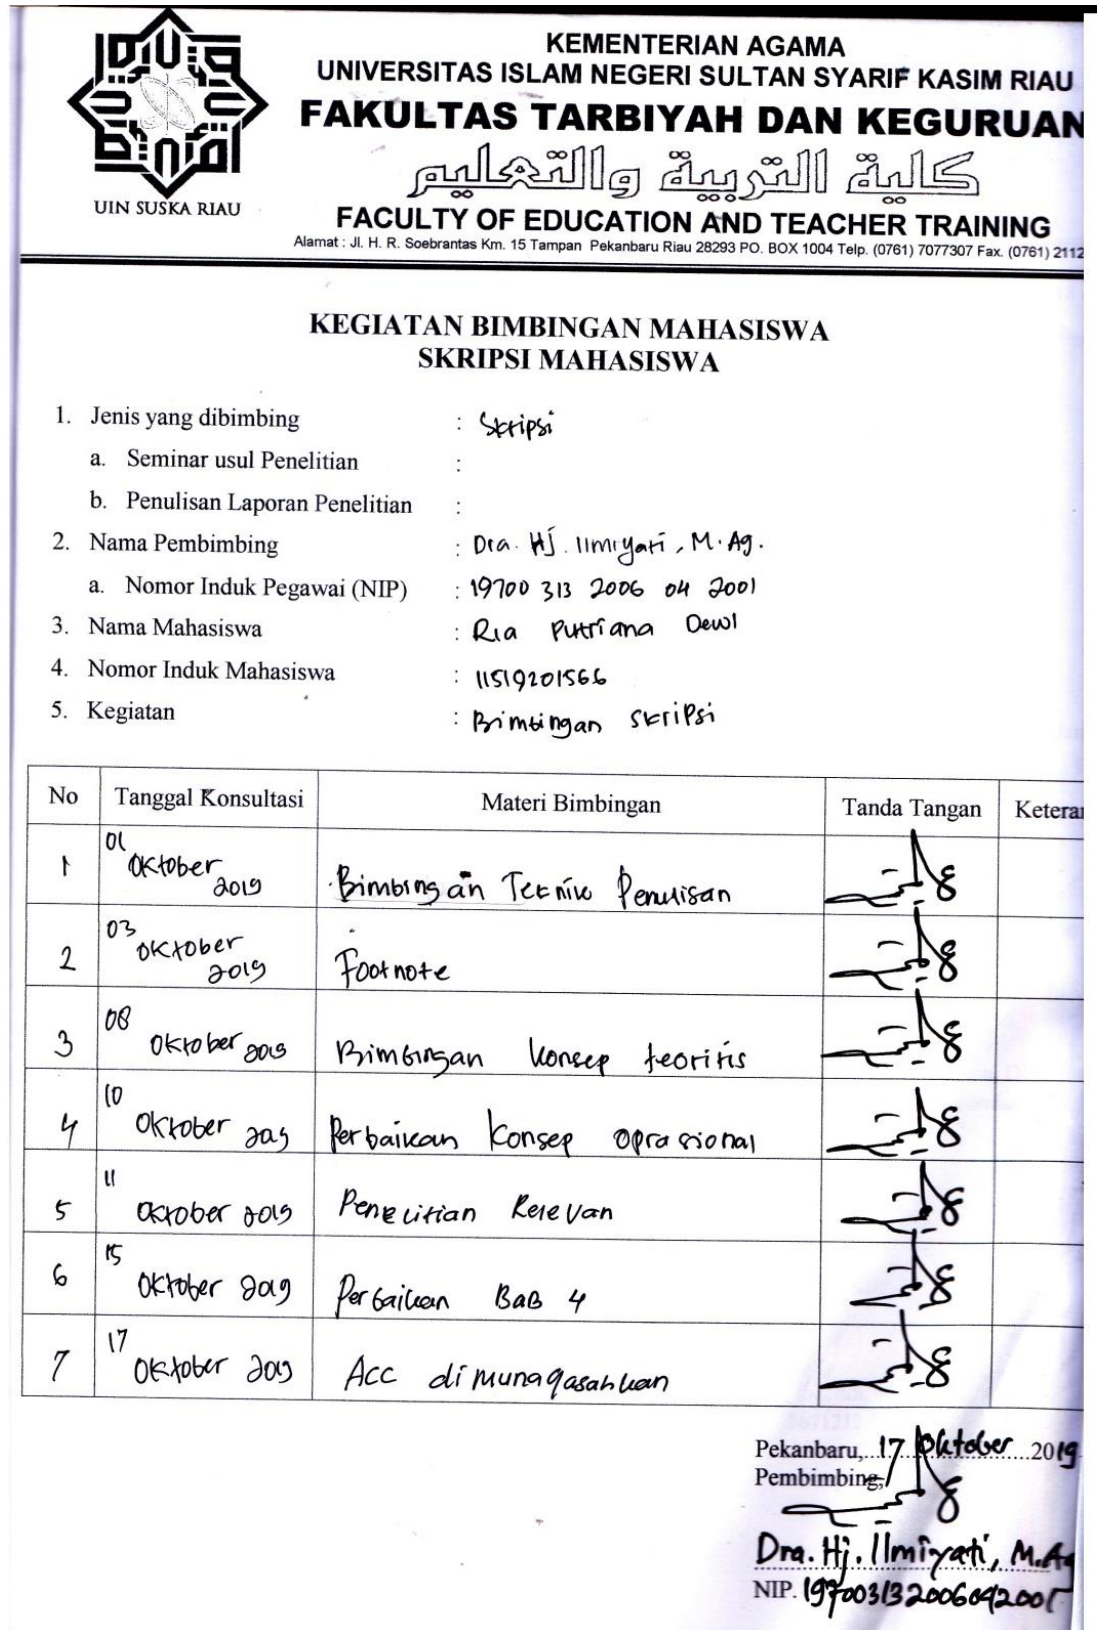 KEMENTERIAN AGAMA
UNIVERSITAS ISLAM NEGERI SULTAN SYARIF KASIM RIAU
FAKULTAS TARBIYAH DAN KEGURUAN
كلية التربية والتعليم
FACULTY OF EDUCATION AND TEACHER TRAINING
Alamat : Jl. H. R. Soebrantas Km. 15 Tampan Pekanbaru Riau 28293 PO. BOX 1004 Telp. (0761) 7077307 Fax. (0761) 2112
UIN SUSKA RIAU
KEGIATAN BIMBINGAN MAHASISWA
SKRIPSI MAHASISWA
1. Jenis yang dibimbing : Skripsi
a. Seminar usul Penelitian :
b. Penulisan Laporan Penelitian :
2. Nama Pembimbing : Dra. Hj. Ilmiyati, M.Ag.
a. Nomor Induk Pegawai (NIP) : 19700 313 2006 04 2001
3. Nama Mahasiswa : Ria Putriana Dewi
4. Nomor Induk Mahasiswa : 11519201566
5. Kegiatan : Bimbingan skripsi
No Tanggal Konsultasi Materi Bimbingan Tanda Tangan Keteran
1 01 Oktober 2019 Bimbingan Teknik Penulisan
2 03 Oktober 2019 Footnote
3 08 Oktober 2019 Bimbingan konsep teoritis
4 10 Oktober 2019 Perbaikan Konsep oprasional
5 11 Oktober 2019 Penelitian Relevan
6 15 Oktober 2019 Perbaikan BAB 4
7 17 Oktober 2019 Acc dimunaqasahkan
Pekanbaru, 17 Oktober 2019
Pembimbing,
Dra. Hj. Ilmiyati, M.A
NIP. 197003132006042001